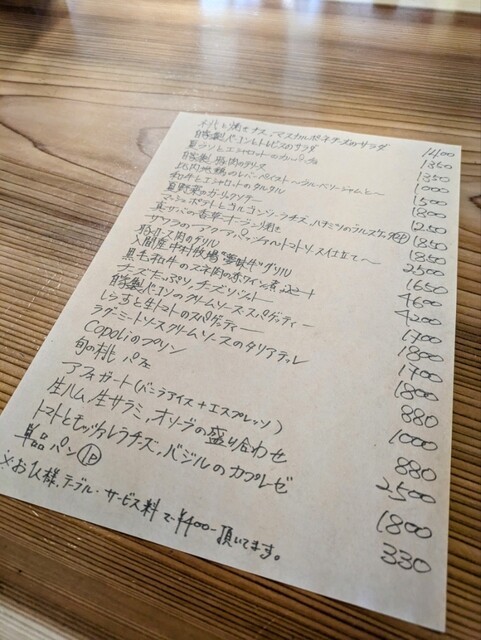 桃と焼きナス、マスカルポネチーズのサラダ 1400
自家製ベーコンとトレビスのサラダ 1350
1350
自家製 豚肉のテリーヌ 1000
比内地鶏のレバーペイスト 〜ウルベリージャムと〜 1500
和牛とエシャロットのタルタル 1800
夏野菜のガーリックソテー 1250
マッシュポテトとゴルゴンゾーラチーズ、ハチミツの 1850
真サバの香草オーブン焼き 1850
サワラのアクアパッツァ 〜トマトソース仕立て〜 2500
豚肩ロース肉のグリル 1650
入間産 中村牧場 グリル 4600
黒毛和牛のスネ肉の赤ワイン煮込み 4200
チーズたっぷり、チーズリゾット 1700
自家製ベーコンのクリームソース スパゲッティー 1800
しらすと生トマトのスパゲッティー 1700
ラグーミートソースクリームソースのタリアテッレ 1800
Copoliのプリン 880
旬の桃 パフェ 1000
アフォガート(バニラアイス+エスプレッソ) 880
生ハム、生サラミ、オリーブの盛り合わせ 2500
トマトとモッツァレラチーズ、バジルのカプレーゼ 1800
単品パン 1P 330
※お1人様、テーブル・サービス料で¥400-頂いてます。